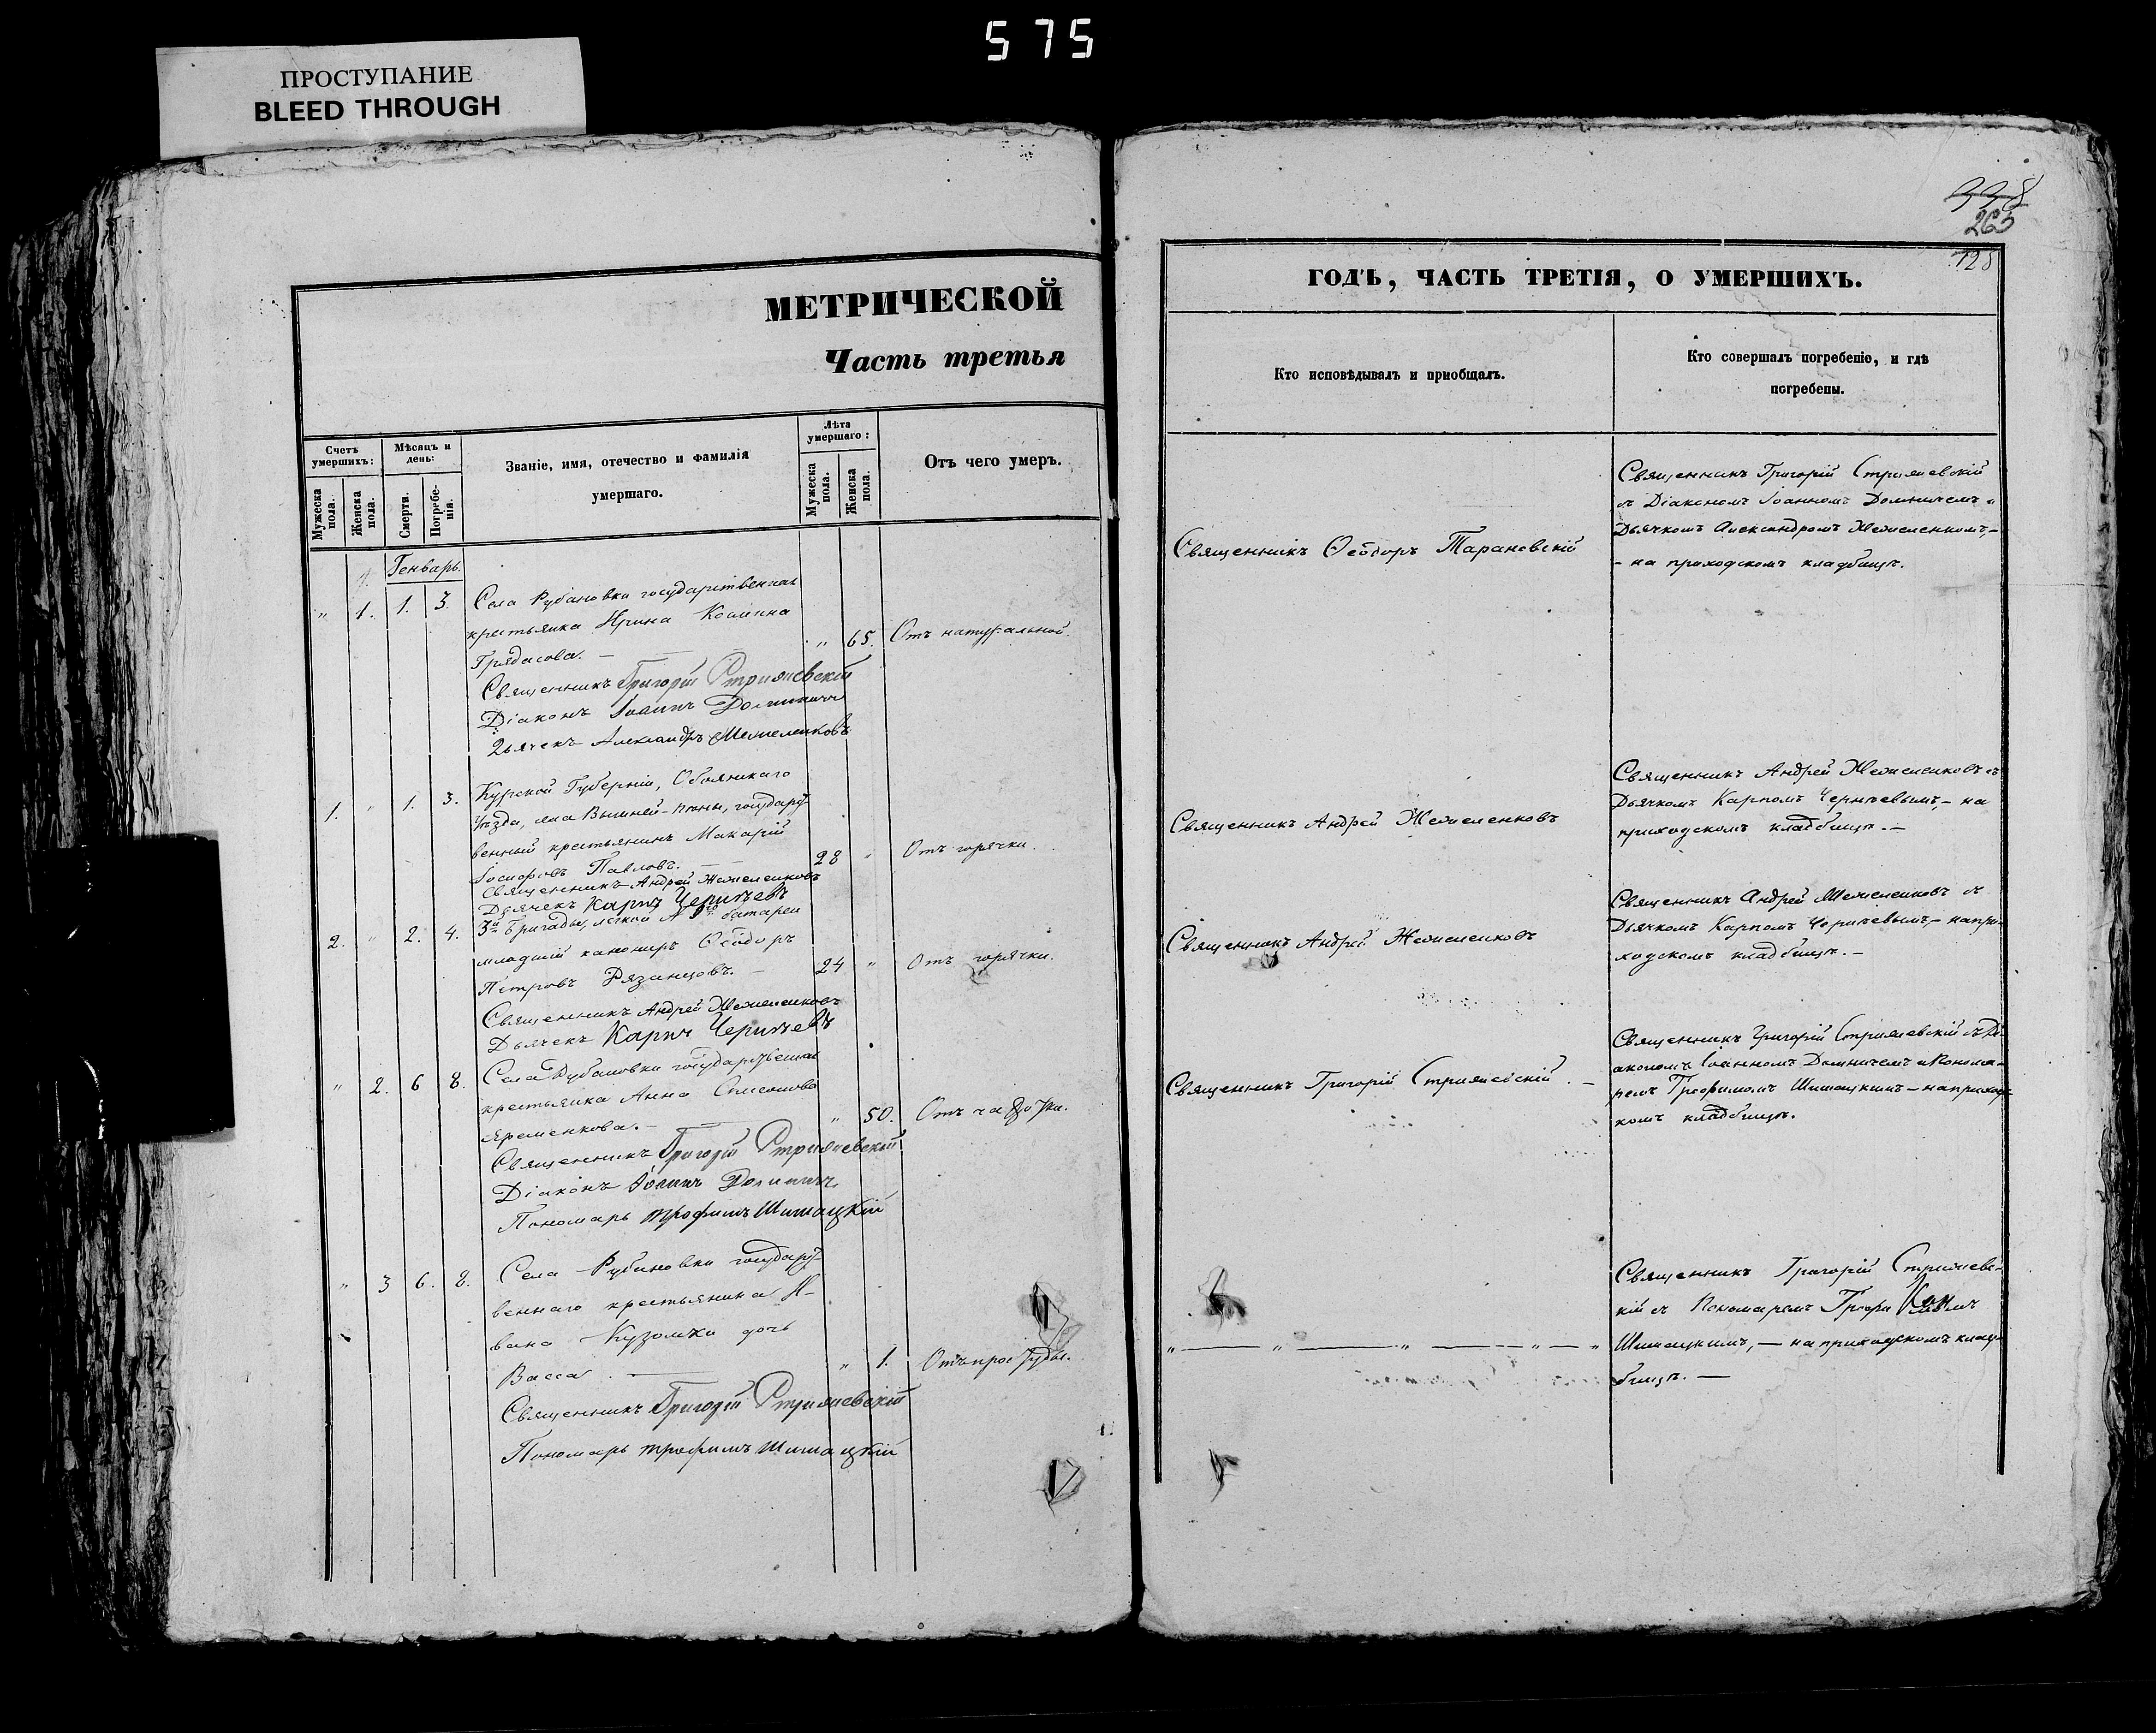 575
ПРОСТУПАНИЕ
BLEED THROUGH
МЕТРИЧЕСКОЙ
Часть третья
Счетъ умершихъ:
Мѣсяцъ и день:
Званіе, имя, отечество и фамилія
умершаго.
Лѣта умершаго:
Отъ чего умеръ.
Мужеска пола.
Женска пола.
Смерти.
Погребенія.
Мужеска пола.
Женска пола.
Генварь.
" 1. 1. 3. Села Рубановки государственная
крестьянка Ирина
Грядасова. — " 65. Отъ натуральной.
Священникъ Григорій Стрияневскій
Діаконъ Іоаннъ Домничъ
Дьячекъ Александръ Жежеленковъ
1. " 1. 3. Курской Губерніи, Обоянскаго
Уѣзда, села Вышней-Пѣны, государст-
венный крестьянинъ Макарій
Іосифовъ Павловъ. — 28 " Отъ горячки.
Священникъ Андрей Жежеленковъ
Дьячекъ Карпъ Чернѣевъ
2. " 2. 4. 3й Бригады, легкой № батареи
младшій канониръ Ѳеодоръ
Петровъ Рязанцовъ. — 24 " Отъ горячки.
Священникъ Андрей Жежеленковъ
Дьячекъ Карпъ Чернѣевъ
" 2. 6 8. Села Рубановки государственная
крестьянка Анна Симонова
Яременкова. — " 50. Отъ чахотки.
Священникъ Григорій Стрияневскій
Діаконъ Іоаннъ Домничъ
Пономарь Трофимъ Шишацкій
" 3 6. 8. Села Рубановки государст-
веннаго крестьянина И-
вана Кузомки дочь
Васса. — " 1. Отъ простуды.
Священникъ Григорій Стрияневскій
Пономарь Трофимъ Шишацкій
265
128
ГОДЪ, ЧАСТЬ ТРЕТІЯ, О УМЕРШИХЪ.
Кто исповѣдывалъ и пріобщалъ.
Кто совершалъ погребеніе, и гдѣ
погребены.
Священникъ Ѳеодоръ Тарановскій
Священникъ Григорій Стрияневскій
съ Діакономъ Іоанномъ Домничемъ и
Дьячкомъ Александромъ Жежеленкомъ,—
— на приходскомъ кладбищѣ.
Священникъ Андрей Жежеленковъ
Священникъ Андрей Жежеленковъ съ
Дьячкомъ Карпомъ Чернѣевымъ,— на
приходскомъ кладбищѣ.—
Священникъ Андрей Жежеленковъ
Священникъ Андрей Жежеленковъ съ
Дьячкомъ Карпомъ Чернѣевымъ,— на при-
ходскомъ кладбищѣ.—
Священникъ Григорій Стрияневскій. —
Священникъ Григорій Стрияневскій съ Ді-
акономъ Іоанномъ Домничемъ и Понома-
ремъ Трофимомъ Шишацкимъ— на приходс-
комъ кладбищѣ.
" — " — " — " — "
Священникъ Григорій Стрияневс-
кій съ Пономаремъ Трофимомъ
Шишацкимъ,— на приходскомъ клад-
бищѣ.—